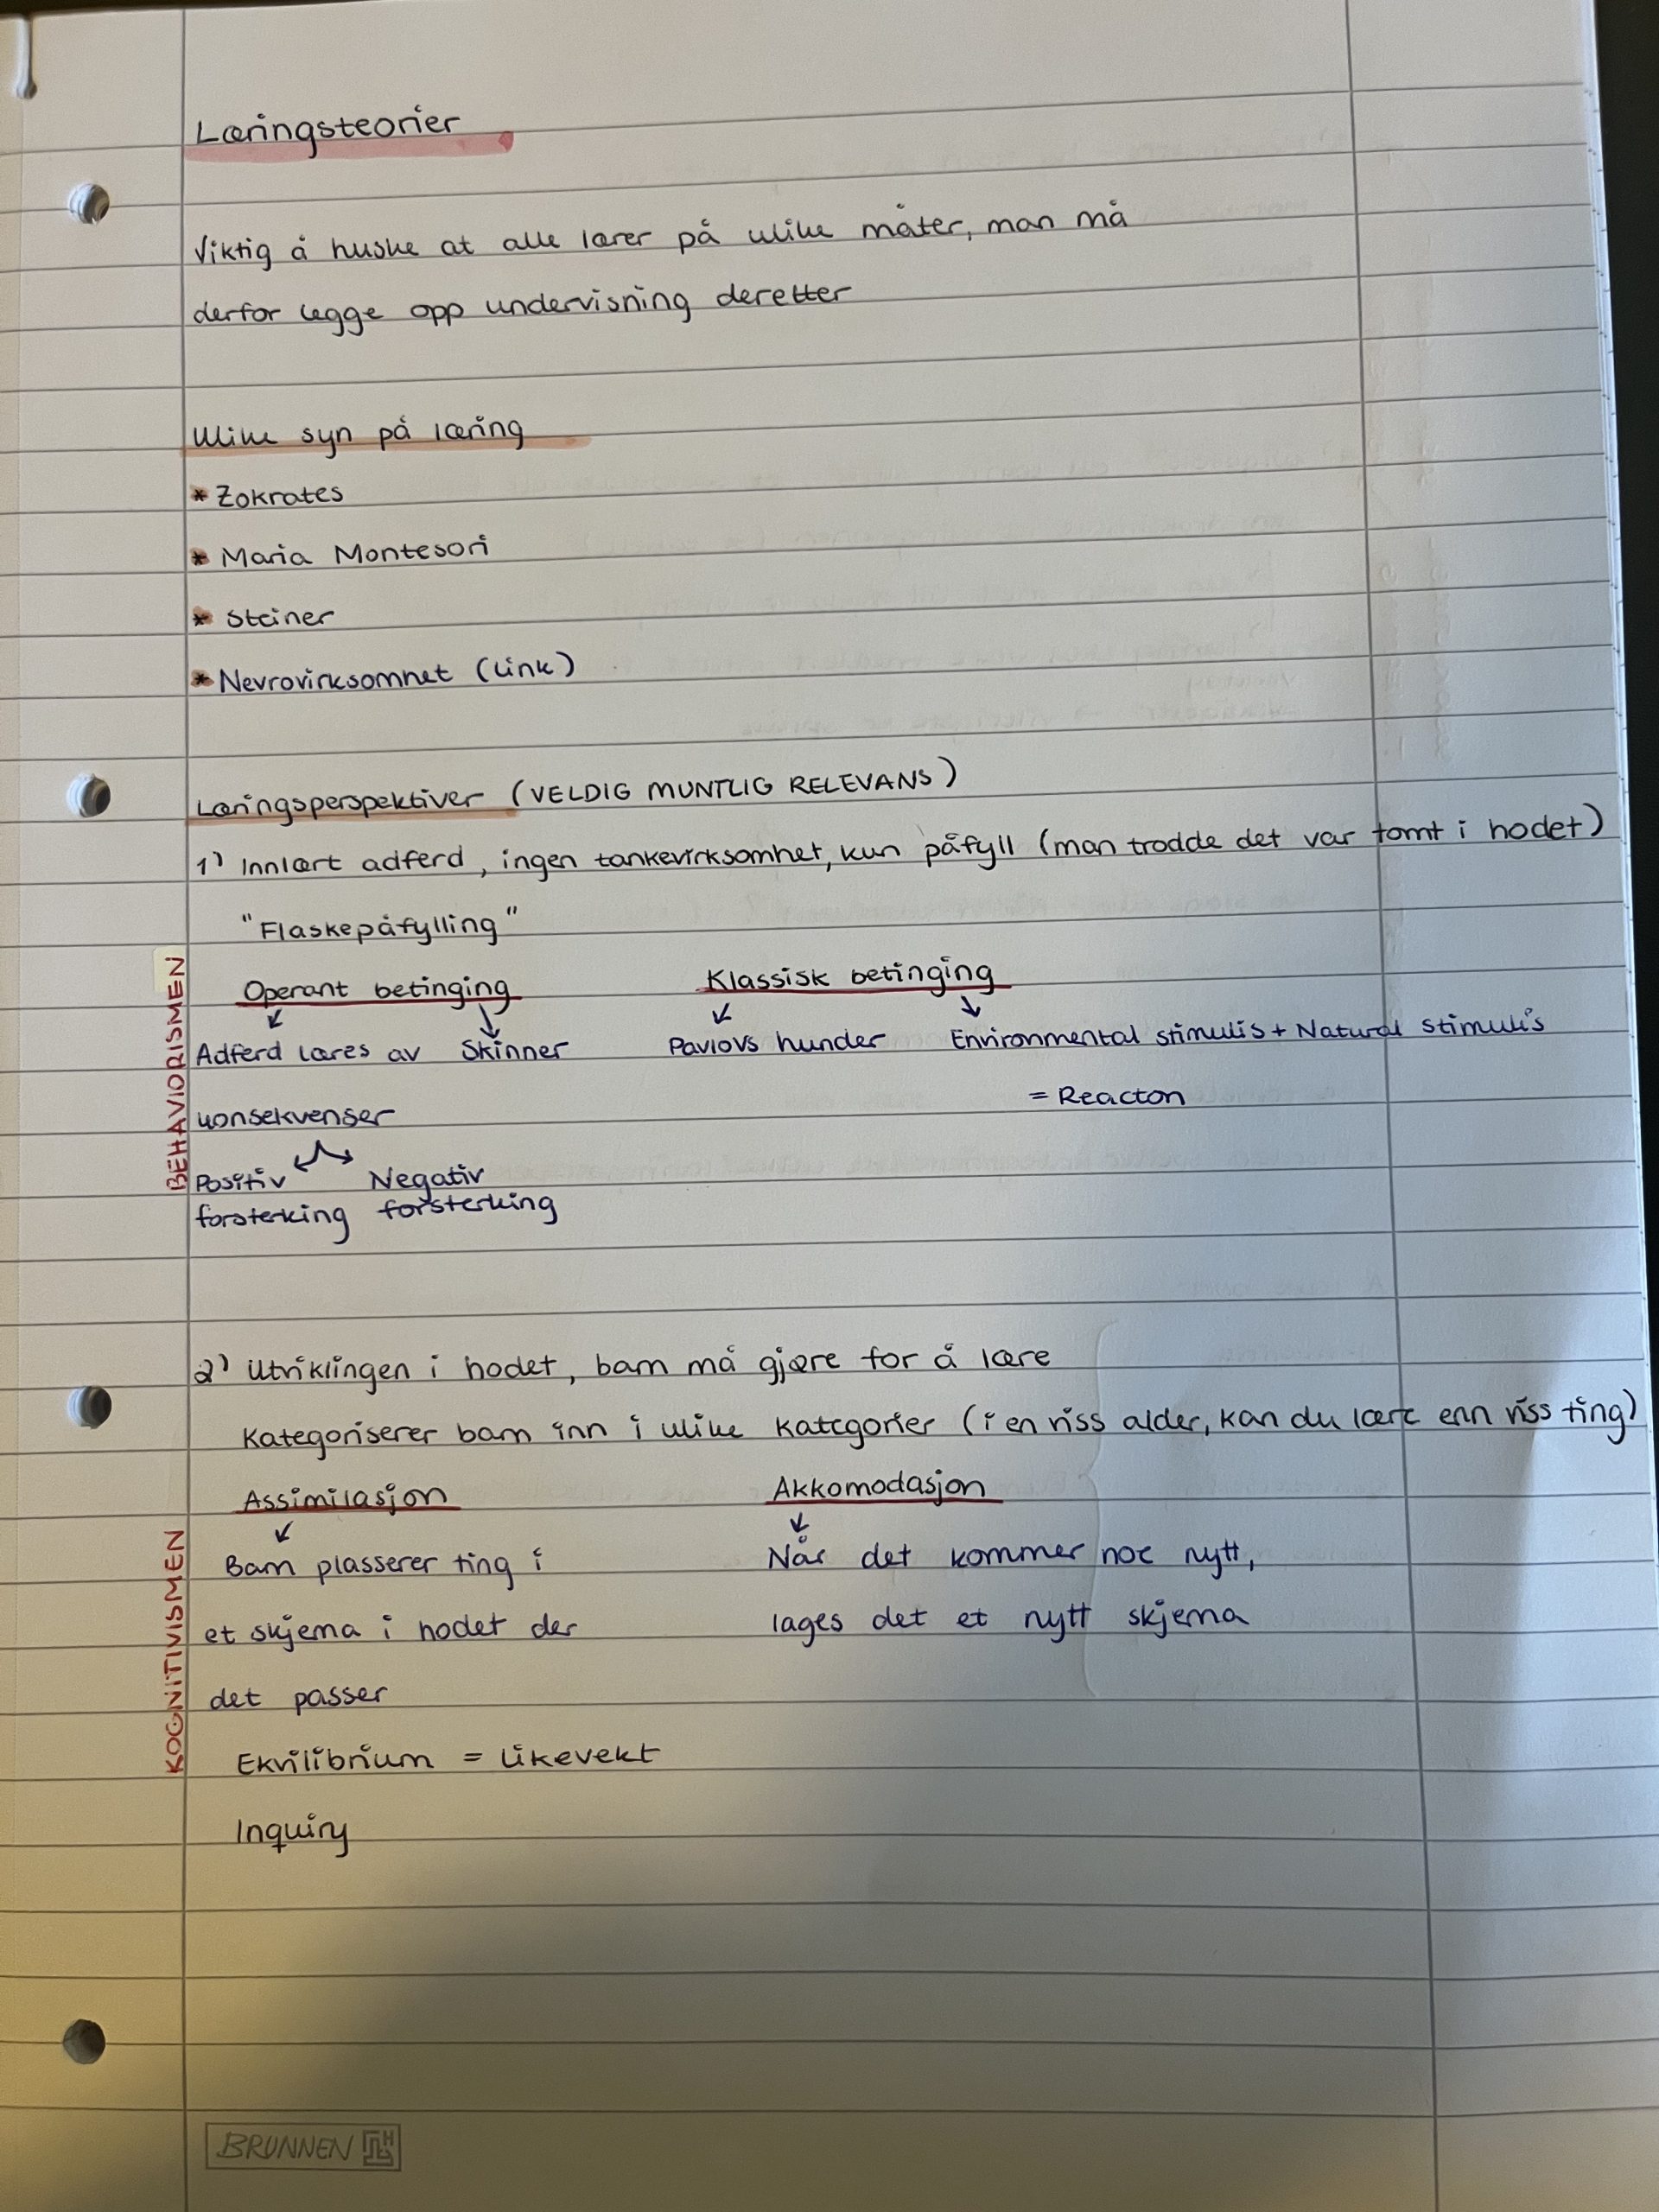 Læringsteorier
Viktig å huske at alle lærer på ulike måter, man må
derfor legge opp undervisning deretter
Ulike syn på læring
* Zokrates
* Maria Montesori
* Steiner
* Nevrovirksomhet (Link)
Læringsperspektiver (VELDIG MUNTLIG RELEVANS)
1) Innlært adferd, ingen tankevirksomhet, kun påfyll (man trodde det var tomt i hodet)
"Flaskepåfylling"
BEHAVIORISMEN
Operant betinging Klassisk betinging
↙ ↘ ↙ ↘
Adferd læres av Skinner Pavlovs hunder Environmental stimulis + Natural stimulis
= Reacton
konsekvenser
↙ ↘
Positiv Negativ
forsterking forsterking
2) Utviklingen i hodet, barn må gjøre for å lære
Kategoriserer barn inn i ulike kategorier (i en viss alder, kan du lære enn viss ting)
KOGNITIVISMEN
Assimilasjon Akkomodasjon
↙ ↙
Barn plasserer ting i Når det kommer noe nytt,
et skjema i hodet der lages det et nytt skjema
det passer
Ekvilibrium = likevekt
Inquiry
BRUNNEN